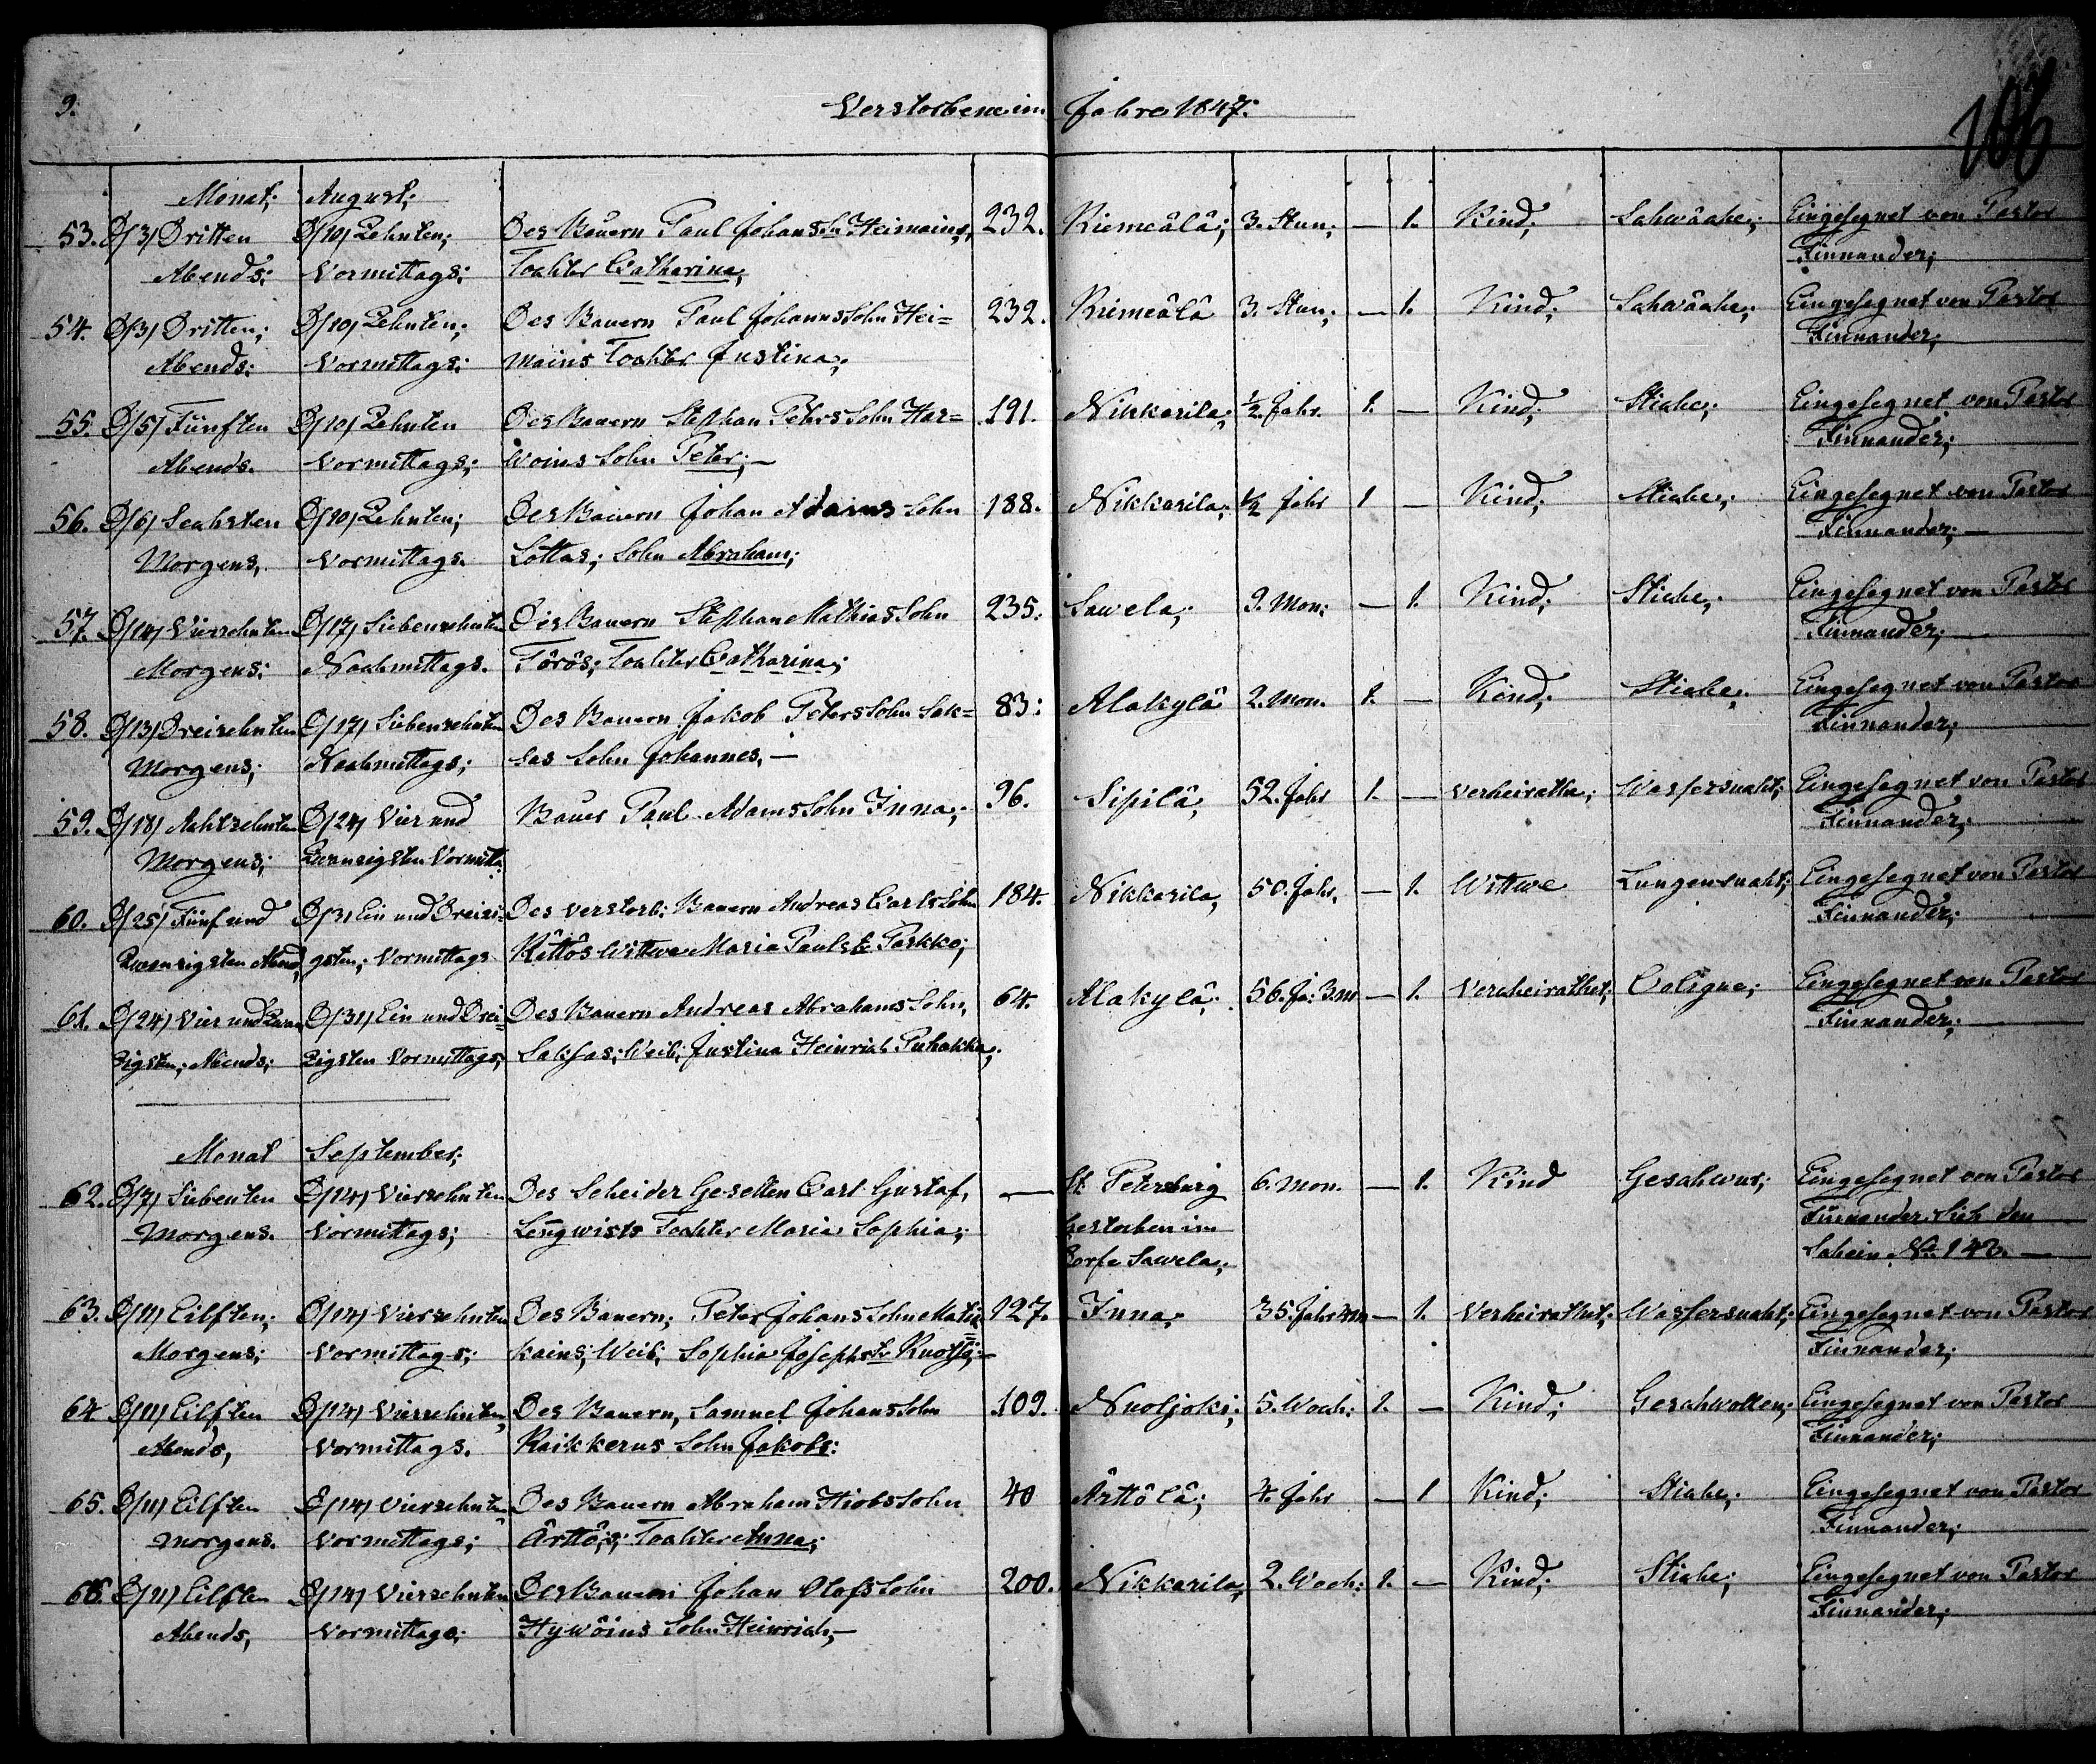 9. Verstorbene im Jahre 1847.
Monat: August:
53. D/3/ Dritten D/10/ Zehnten; Des Bauern Paul Johans Sn Heimains, 232. Riemeälä; 3. Stun; — 1. Kind; Schwäche; Eingesegnet von Pastor
Abends: Vormittags: Tochter Catharina; Finnander;
54. D/3/ Dritten; D/10/ Zehnten; Des Bauern Paul Johanns Sohn Hei= 232. Riemeälä 3. Stun; — 1. Kind; Schwäche; Eingesegnet von Pastor
Abends: Vormittags: mains Tochter Justina; Finnander;
55. D/5/ Fünften D/10/ Zehnten Des Bauern Stephan Peters Sohn Har= 191. Nikkarila; ½ Jahr. 1. — Kind; Stiche; Eingesegnet von Pastor
Abends. Vormittags; woins Sohn Peter; — Finnander;
56. D/6/ Sechsten D/10/ Zehnten; Des Bauern Johan Adams Sohn 188. Nikkarila; ½ Jahr 1 — Kind; Stiche; Eingesegnet von Pastor
Morgens, Vormittags. Lottas; Sohn Abraham; Finnander; —
57. D/14/ Vierzehnten D/17/ Siebenzehnten Des Bauern Stephan Mathias Sohn 235. Sawela; 9. Mon: — 1. Kind; Stiche; Eingesegnet von Pastor
Morgens: Nachmittags. Törös; Tochter Catharina; Finnander; —
58. D/13/ Dreizehnten D/17/ Siebenzehnten Des Bauern Jakob Peters Sohn Sak= 83: Alakylä 2. Mon. 1. — Kind; Stiche; Eingesegnet von Pastor
Morgens; Nachmittags; sas Sohn Johannes. — Finnander;
59. D/18/ Achtzehnten D/24/ Vier und Bauer Paul Adams Sohn Inna; 96. Sipilä, 52. Jahr 1. — verheirathe; Wassersucht; Eingesegnet von Pastor
Morgens; Zwanzigsten Vormitta: Finnander;
60. D/25/ Fünf und D/31 Ein und Dreizi= Des verstorb: Bauern Andreas Carls Sohn 184. Nikkarila, 50. Jahr, — 1. Wittwe Lungensucht; Eingesegnet von Pastor
Zwanzigsten Abend, gsten; Vormittags Rättös Wittwe Maria Pauls Tr Parkko; Finnander;
61. D/24/ Vier und Zwan D/31/ Ein und Drei= Des Bauern Andreas Abrahams Sohn, 64. Alakylä; 56. Ja: 3. m — 1. Vercheirathet; Coligue; Eingesegnet von Pastor
Zigsten; Abends; Zigsten Vormittags; Saksas; Weib; Justina Heinrich Puhakka; Finnander; —
Monat September;
62. D/7/ Siebenten D/14/ Vierzehnten Des Scheider Gesellen Carl Gustaf, — St. Petersburg 6. Mon. — 1. Kind Geschwur; Eingesegnet von Pastor
Morgens. Vormittags; Lengwists Tochter Maria Sophia; gestorben im Finnander. Sieh den
Dorfe Sawela; Schein No 143. —
63. D/11/ Eilften; D/14/ Vierzehnten Des Bauern; Peter Johans Sohn Matis= 127. Inna; 35 Jahr — 1. Verheirathet; Wassersucht; Eingesegnet von Pastor
Morgens; Vormittags; kains; Weib; Sophia Josephs Tr — Finnander;
64 D/11/ Eilften D/14/ Vierzehnten, Des Bauern, Samuel Johans Sohn 109. Nuoljoki; 5. Woch: 1. — Kind; Geschwollen; Eingesegnet von Pastor
Abends, Vormittags. Raikkerus Sohn Jakob: Finnander;
65. D/11/ Eilften D/14/ Vierzehnten Des Bauern Abraham Hiobs Sohn 40 Ärttölä; 4. Jahr — 1 Kind; Stiche; Eingesegnet von Pastor
Morgens. Vormittags; Ärttös; Tochter Anna; Finnander;
66. D/11/ Eilften D/14/ Vierzehnten Des Bauern Johan Olafs Sohn 200. Nikkarila; 2. Woch: 1. — Kind; Stiche; Eingesegnet von Pastor
Abends, Vormittags; Hywöins Sohn Heinrich; — Finnander;